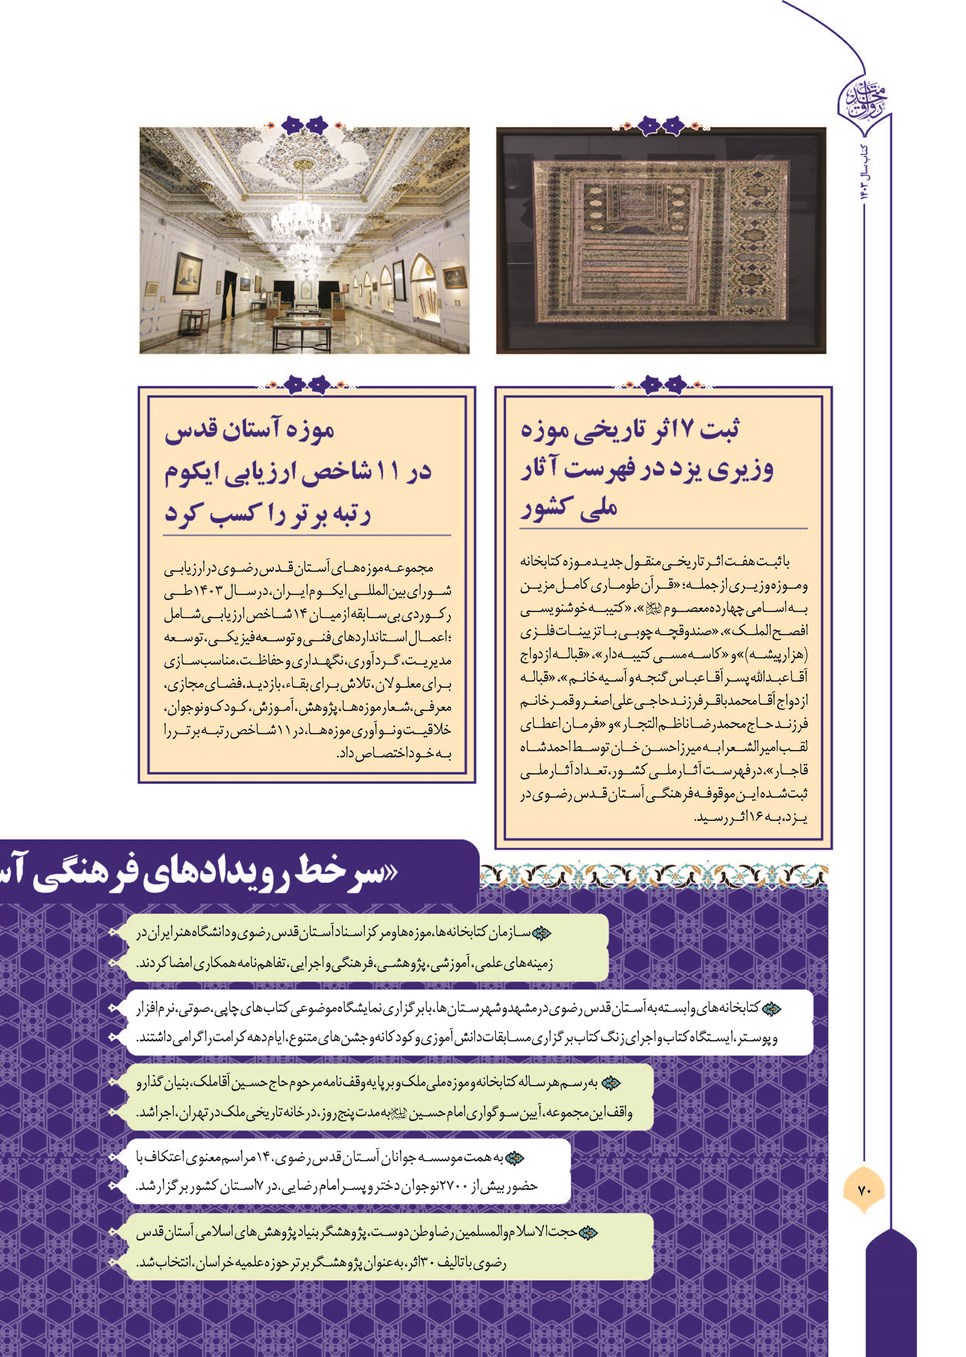 کتاب سال ۱۴۰۳
ثبت ۷ اثر تاریخی موزه
وزیری یزد در فهرست آثار
ملی کشور
با ثبت هفت اثر تاریخی منقول جدید موزه کتابخانه
و موزه وزیری از جمله؛ «قرآن طوماری کامل مزین
به اسامی چهارده معصوم»، «کتیبه خوشنویسی
افصح الملک»، «صندوقچه چوبی با تزیینات فلزی
(هزارپیشه)» و «کاسه مسی کتیبه‌دار»، «قباله ازدواج
آقا عبدالله پسر آقا عباس گنجه و آسیه خانم»، «قباله
ازدواج آقا محمدباقر فرزند حاجی علی اصغر و قمر خانم
فرزند حاج محمدرضا ناظم التجار» و «فرمان اعطای
لقب امیرالشعرا به میرزا حسن خان توسط احمدشاه
قاجار»، در فهرست آثار ملی کشور، تعداد آثار ملی
ثبت شده این موقوفه فرهنگی آستان قدس رضوی در
یزد، به ۱۶ اثر رسید.
موزه آستان قدس
در ۱۱ شاخص ارزیابی ایکوم
رتبه برتر را کسب کرد
مجموعه موزه‌های آستان قدس رضوی در ارزیابی
شورای بین‌المللی ایکوم ایران، در سال ۱۴۰۳ طی
رکوردی بی‌سابقه از میان ۱۴ شاخص ارزیابی شامل
؛اعمال استانداردهای فنی و توسعه فیزیکی، توسعه
مدیریت، گردآوری، نگهداری و حفاظت، مناسب‌سازی
برای معلولان، تلاش برای بقاء، بازدید، فضای مجازی،
معرفی، شعار موزه‌ها، پژوهش، آموزش، کودک و نوجوان،
خلاقیت و نوآوری موزه‌ها، در ۱۱ شاخص رتبه برتر را
به خود اختصاص داد.
«سرخط رویدادهای فرهنگی
سازمان کتابخانه‌ها، موزه‌ها و مرکز اسناد آستان قدس رضوی و دانشگاه هنر ایران در
زمینه‌های علمی، آموزشی، پژوهشی، فرهنگی و اجرایی، تفاهم‌نامه همکاری امضا کردند.
کتابخانه‌های وابسته به آستان قدس رضوی در مشهد و شهرستان‌ها، با برگزاری نمایشگاه موضوعی کتاب‌های چاپی، صوتی، نرم‌افزار
و پوستر، ایستگاه کتاب و اجرای زنگ کتاب برگزاری مسابقات دانش‌آموزی و کودکانه و جشن‌های متنوع، ایام دهه کرامت را گرامی داشتند.
به رسم هرساله کتابخانه و موزه ملی ملک و بر پایه وقف‌نامه مرحوم حاج حسین آقا ملک، بنیان‌گذار و
واقف این مجموعه، آیین سوگواری امام حسین به مدت پنج روز، در خانه تاریخی ملک در تهران، اجرا شد.
به همت موسسه جوانان آستان قدس رضوی، ۱۴ مراسم معنوی اعتکاف با
حضور بیش از ۲۷۰۰ نوجوان دختر و پسر امام رضایی، در ۷ استان کشور برگزار شد.
حجت‌الاسلام والمسلمین رضا وطن‌دوست، پژوهشگر بنیاد پژوهش‌های اسلامی آستان قدس
رضوی با تالیف ۳۰ اثر، به عنوان پژوهشگر برتر حوزه علمیه خراسان، انتخاب شد.
۷۰